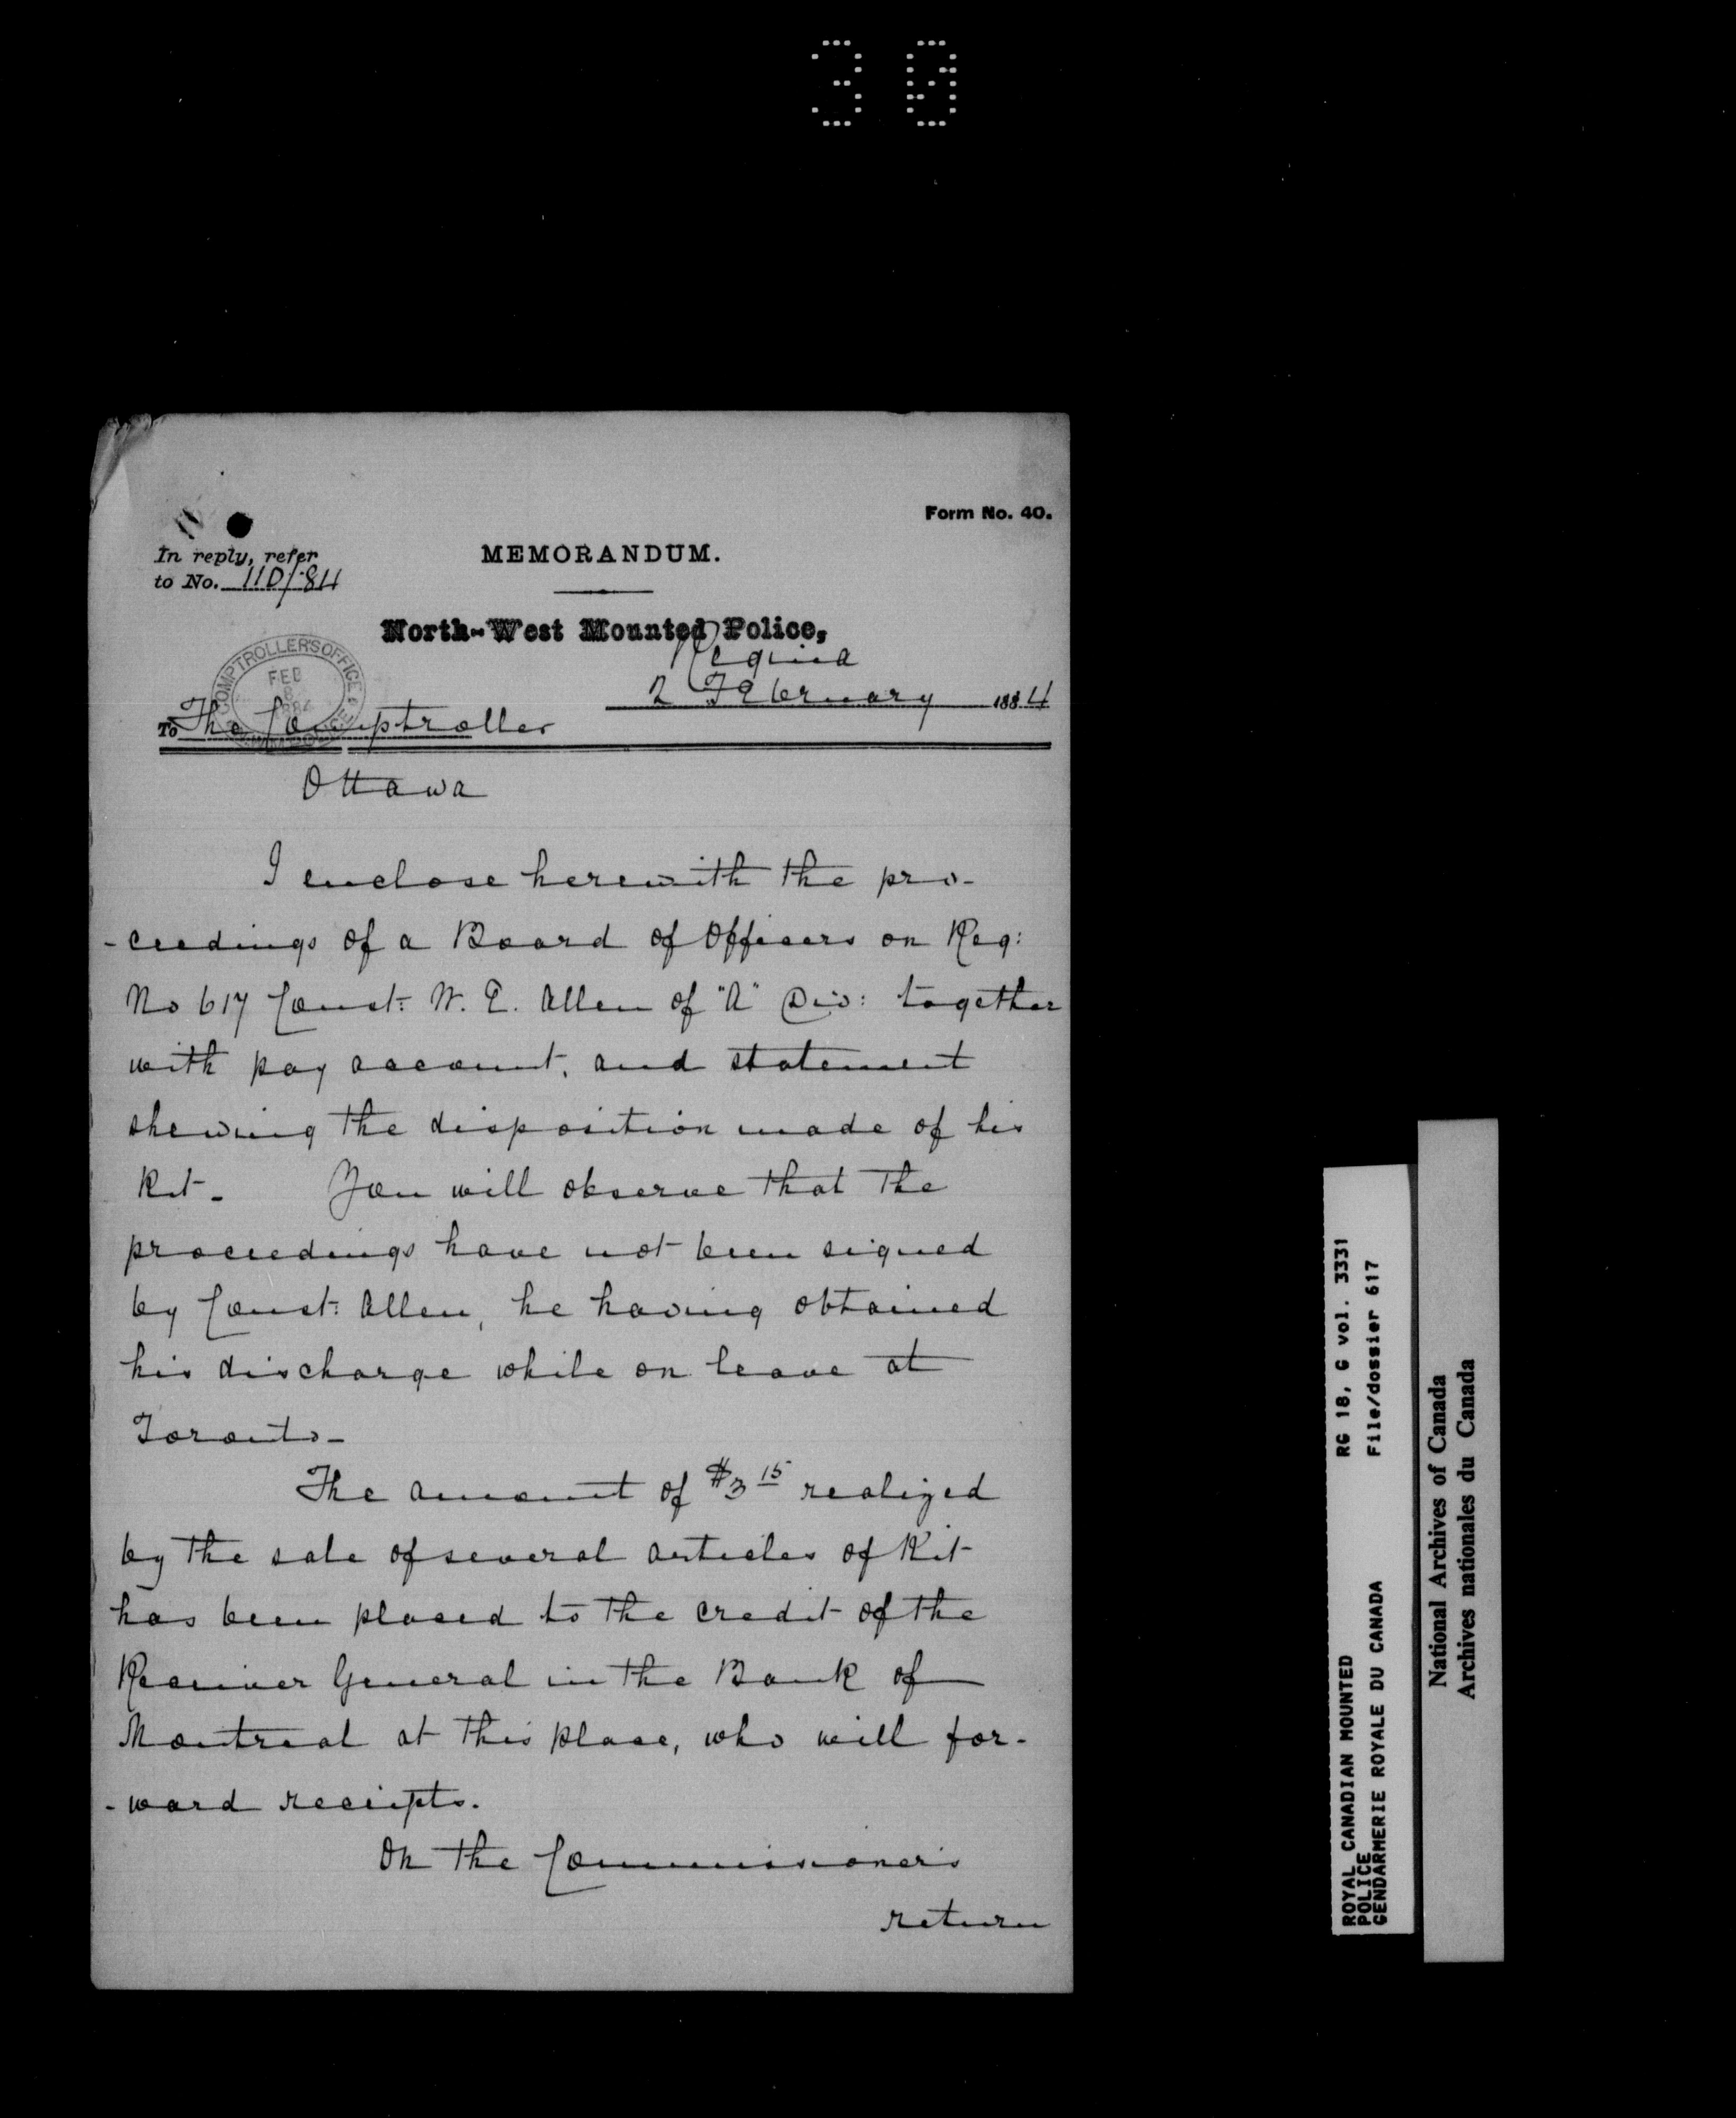 30
Form No. 40.
In reply, refer
to No. 110/84
MEMORANDUM.
North-West Mounted Police,
Regina
2 February 1884
COMPTROLLER'S OFFICE
FEB
8
1884
To The Comptroller
Ottawa
I enclose herewith the pro-
-ceedings of a Board of Officers on Reg:
No 617 Const: W. E. Allen of "A" Div: together
with pay account, and statement
shewing the disposition made of his
Kit- You will observe that the
proceedings have not been signed
by Const: Allen, he having obtained
his discharge while on leave at
Toronto-
The amount of $3 15 realized
by the sale of several articles of Kit
has been placed to the credit of the
Receiver General in the Bank of
Montreal at this place, who will for-
-ward receipts.
On the Commissioner's
return
ROYAL CANADIAN MOUNTED RG 18, G vol. 3331
POLICE
GENDARMERIE ROYALE DU CANADA File/dossier 617
National Archives of Canada
Archives nationales du Canada